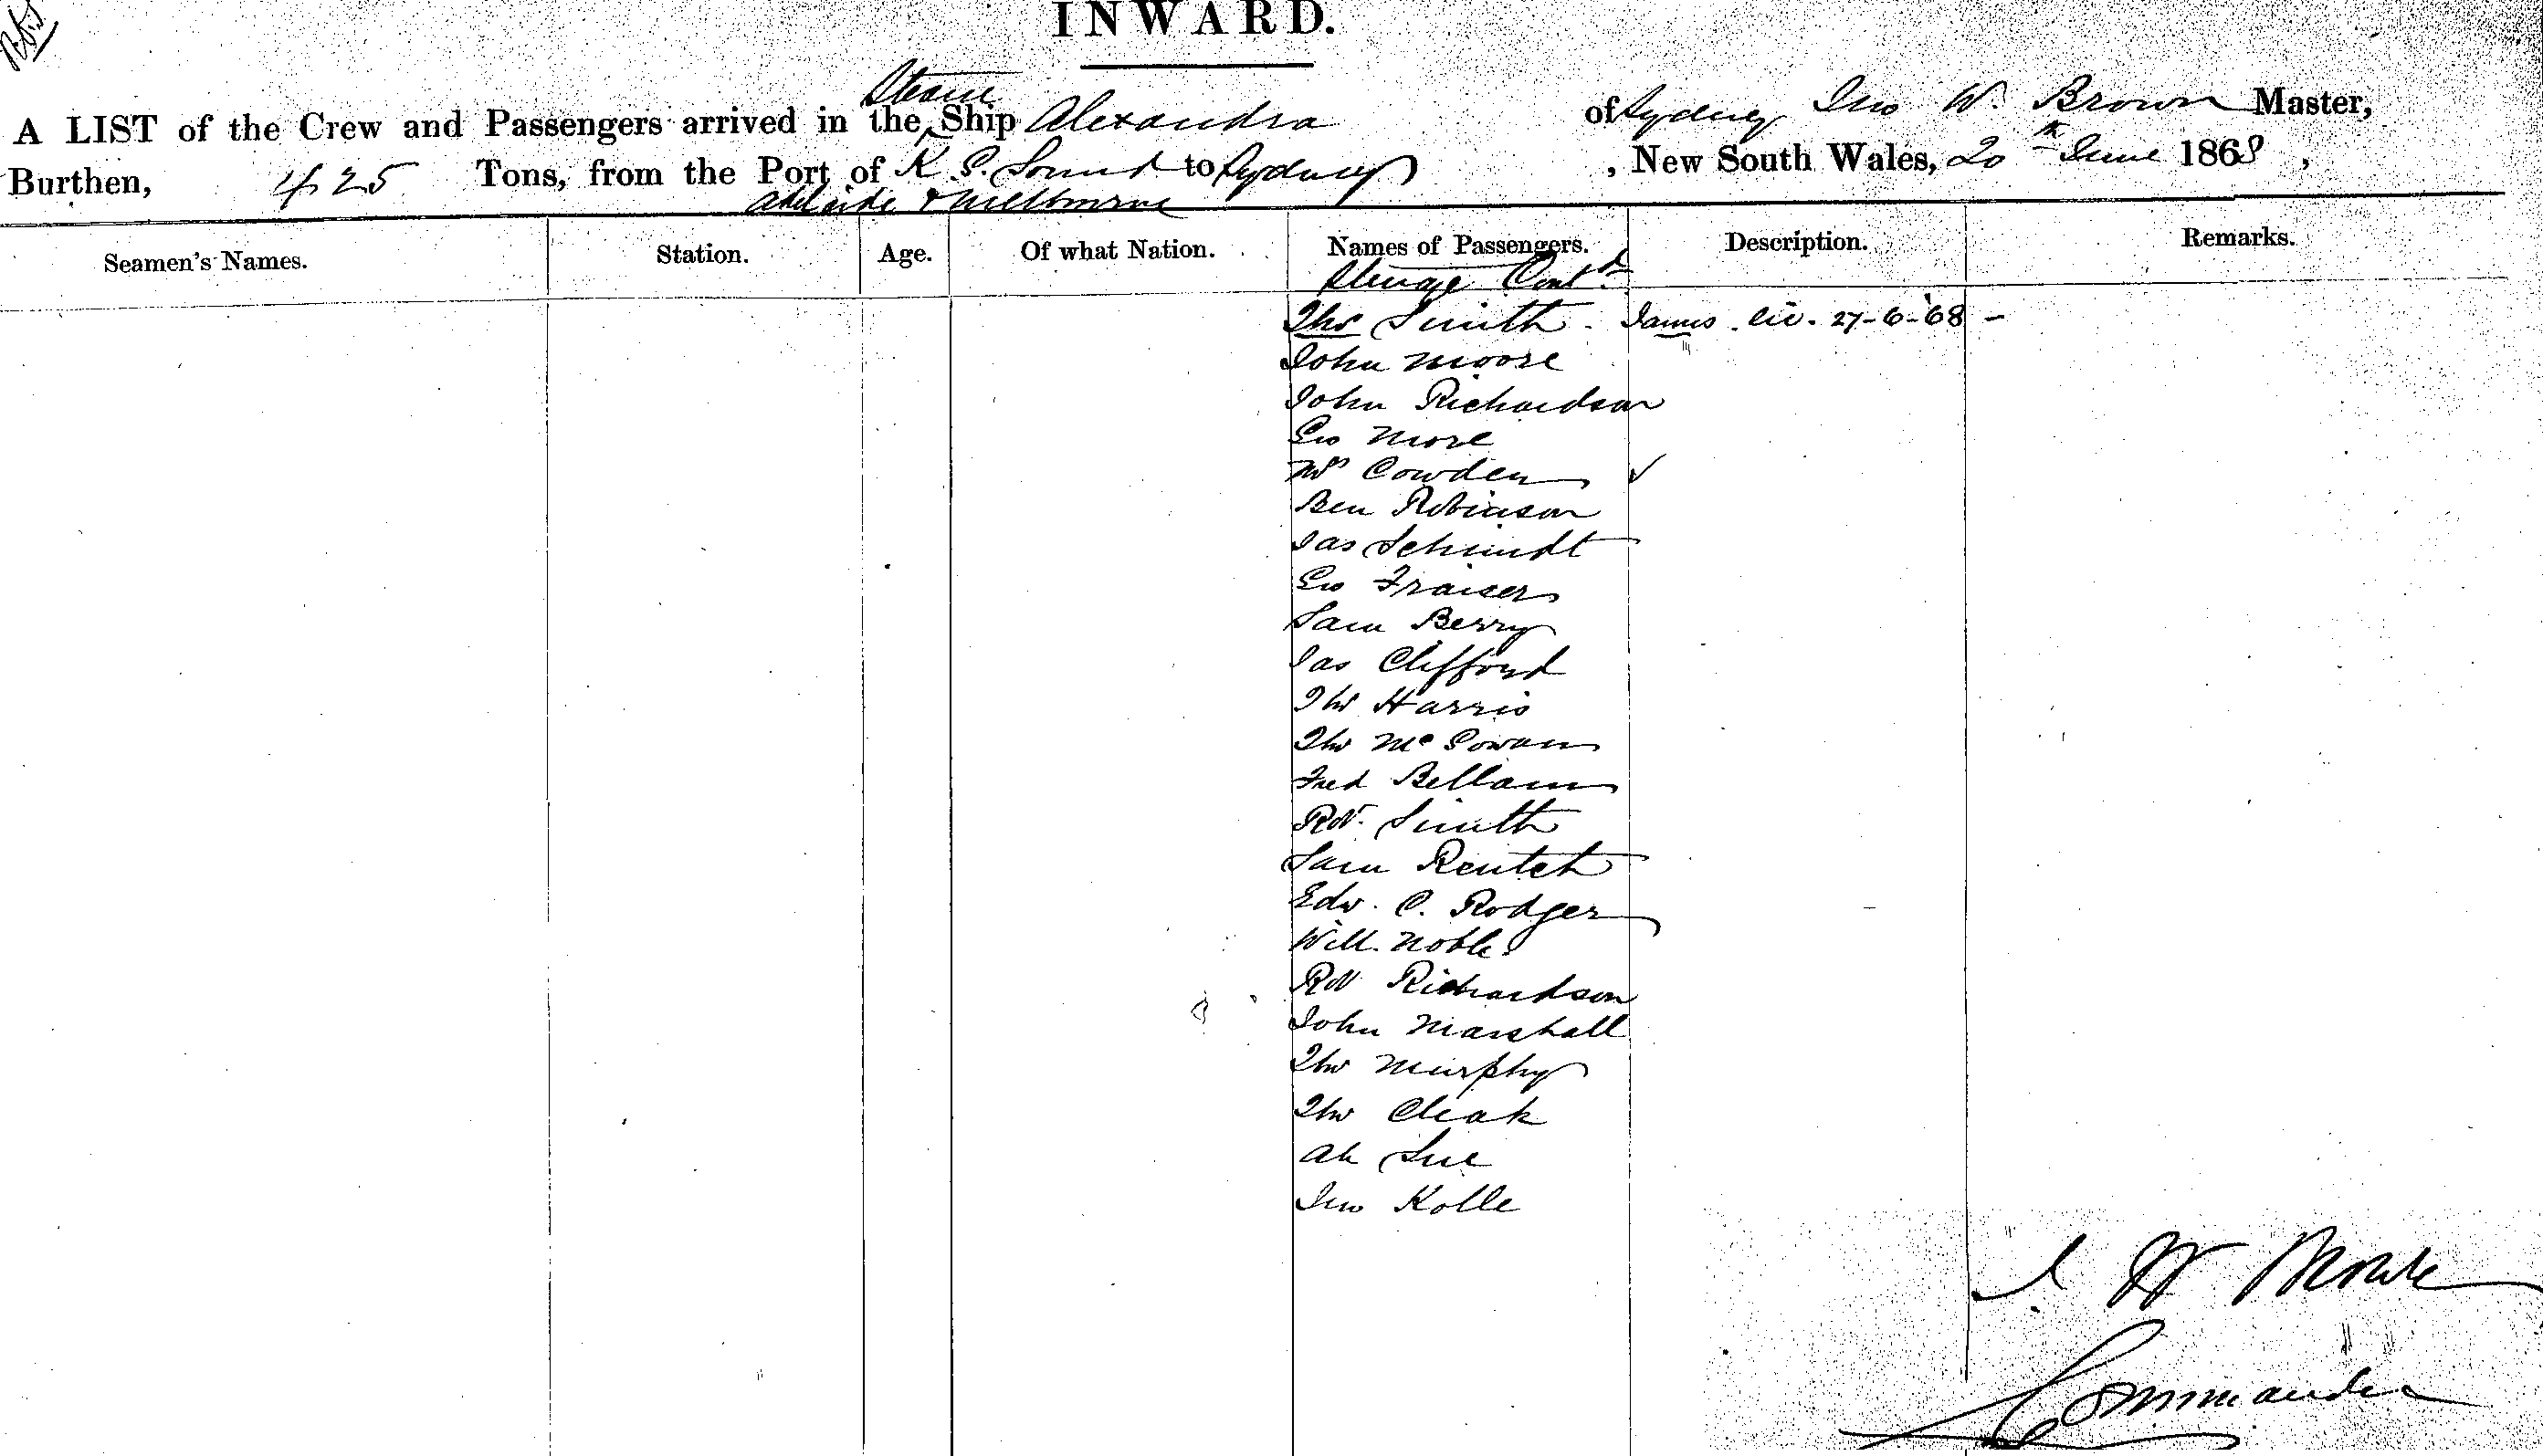 INWARD.
Steam
A LIST of the Crew and Passengers arrived in the Ship Alexandra of Sydney Jno W. Brown Master,
Burthen, 425 Tons, from the Port of K. G. Sound to Sydney, New South Wales, 20th June 1868,
Adelaide & Melbourne
Seamen's Names. Station. Age. Of what Nation. Names of Passengers. Description. Remarks.
Steerage Contd
Thos Smith. James. lic. 27-6-'68 -
John Moore
John Richardson
Geo More
Mrs Cowden ✓
Ben Robinson
Jas Schmidt
Geo Fraiser
Sam Berry
Jas Clifford
Thos Harris
Thos Mc Gowan
Fred Bellam
Robt. Smith
Sam Rentch
Edw. C. Rodger
Will. Noble
Robt Richardson
John Marshall
Thos Murphy
Thos Cleak
Ah Sue
Jno Kolle
J W Brown
Commander